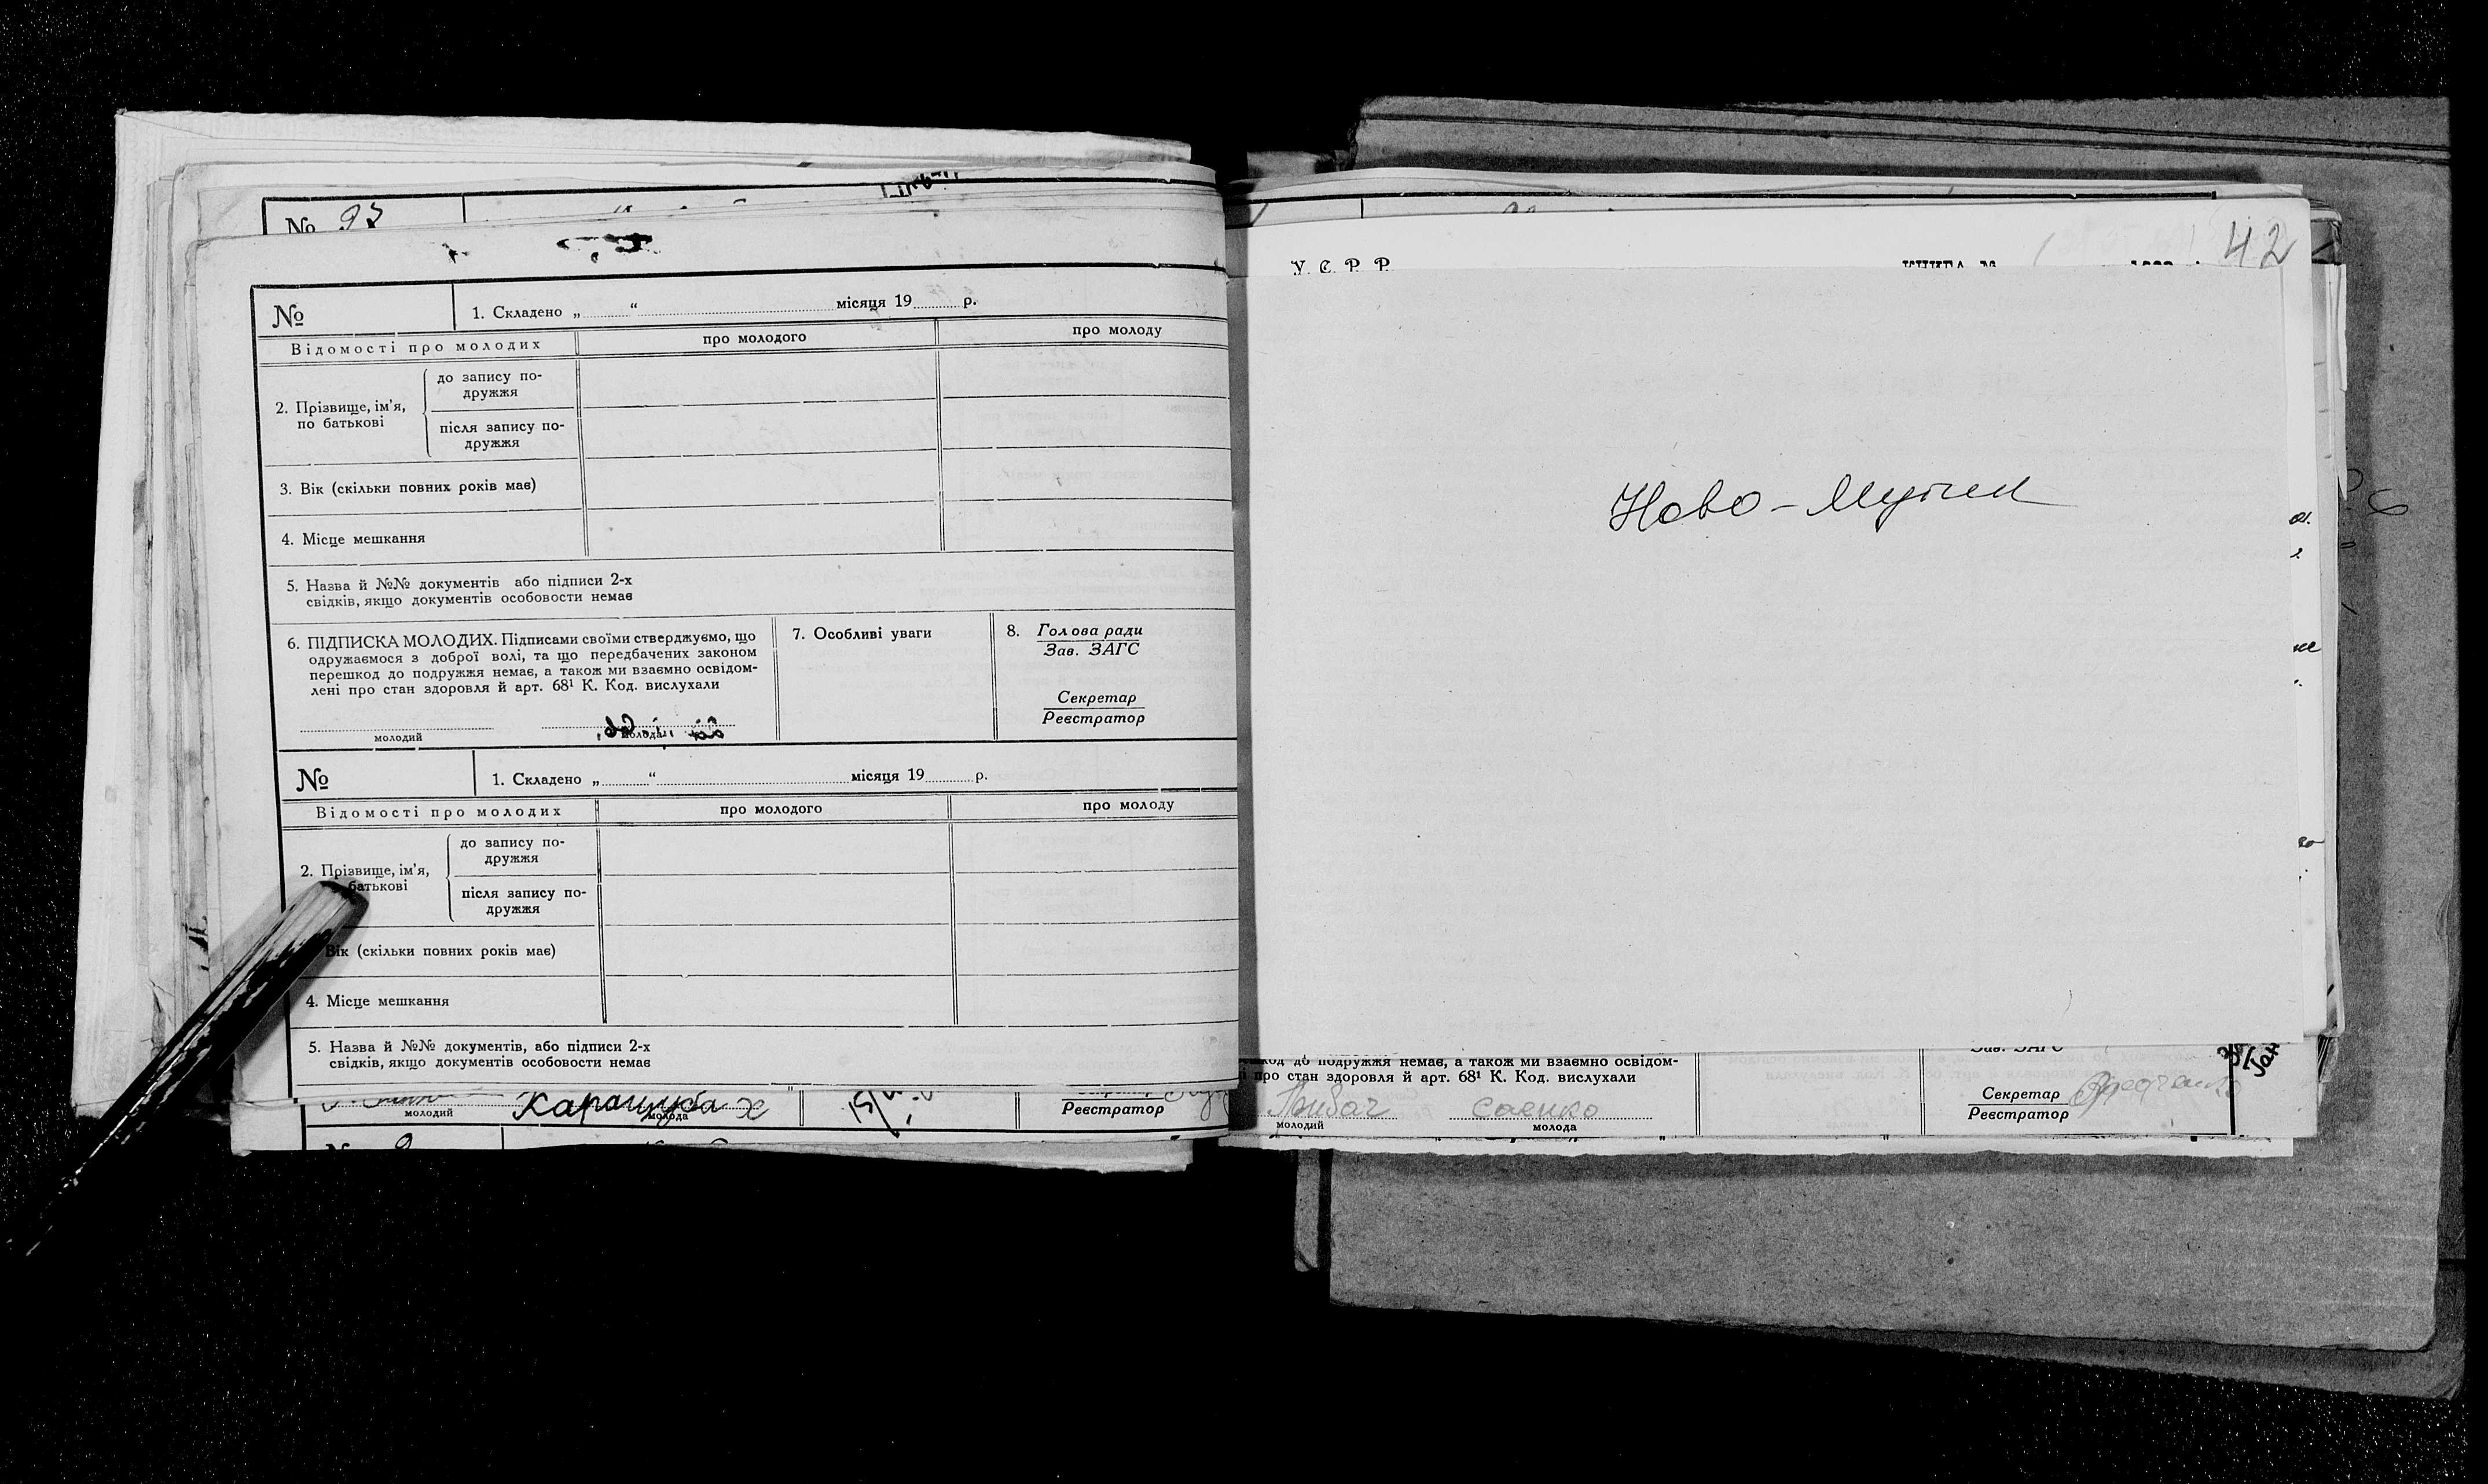 № 97
№
1. Складено „ “ місяця 19 р.
Відомості про молодих
про молодого
про молоду
2. Прізвище, ім'я, по батькові
до запису по-
дружжя
після запису по-
дружжя
3. Вік (скільки повних років має)
4. Місце мешкання
5. Назва й №№ документів або підписи 2-х
свідків, якщо документів особовости немає
6. ПІДПИСКА МОЛОДИХ. Підписами своїми стверджуємо, що
одружаємося з доброї волі, та що передбачених законом
перешкод до подружжя немає, а також ми взаємно освідом-
лені про стан здоровля й арт. 68¹ К. Код. вислухали
молодий
молода
7. Особливі уваги
8. Голова ради
Зав. ЗАГС
Секретар
Реєстратор
№
1. Складено „ “ місяця 19 р.
Відомості про молодих
про молодого
про молоду
2. Прізвище, ім'я,
батькові
до запису по-
дружжя
після запису по-
дружжя
Вік (скільки повних років має)
4. Місце мешкання
5. Назва й №№ документів, або підписи 2-х
свідків, якщо документів особовости немає
молодий
молода
Реєстратор
42
У. С. Р. Р.
Ново-
до подружжя немає, а також ми взаємно освідом-
про стан здоровля й арт. 68¹ К. Код. вислухали
саенко
молодий
молода
Зав. ЗАГС
Секретар
Реєстратор